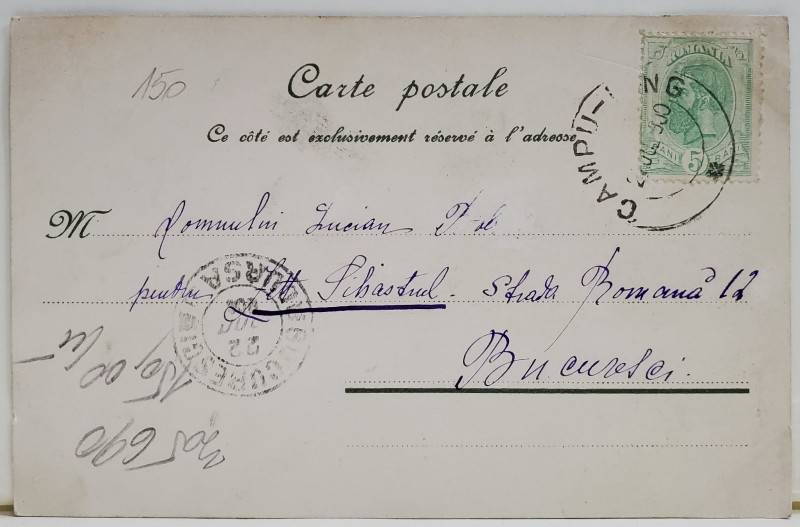 150
Carte postale
Ce côté est exclusivement réservé à l'adresse
CAMPU-LUNG
5
BANI
M Domnului Lucian
pentru Sihastrul. Strada Romană 12
Bucuresci.
BUCURESCI
BURSA
22
150,00 lei
305690